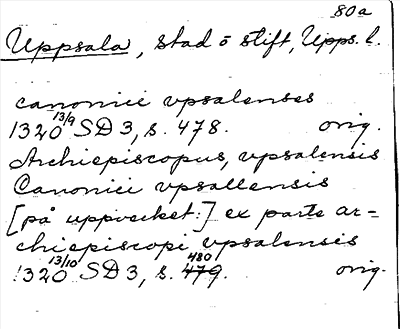 80a
Uppsala, stad o stift, Upps. l.
canonici vpsalenses
1320 13/9 SD 3, s. 478. orig.
Archiepiscopus, vpsalensis
Canonici vpsallensis
[på uppvecket:] ex parte ar=
chiepiscopi vpsalensis
1320 13/10 SD 3, s. 479. 480 orig.